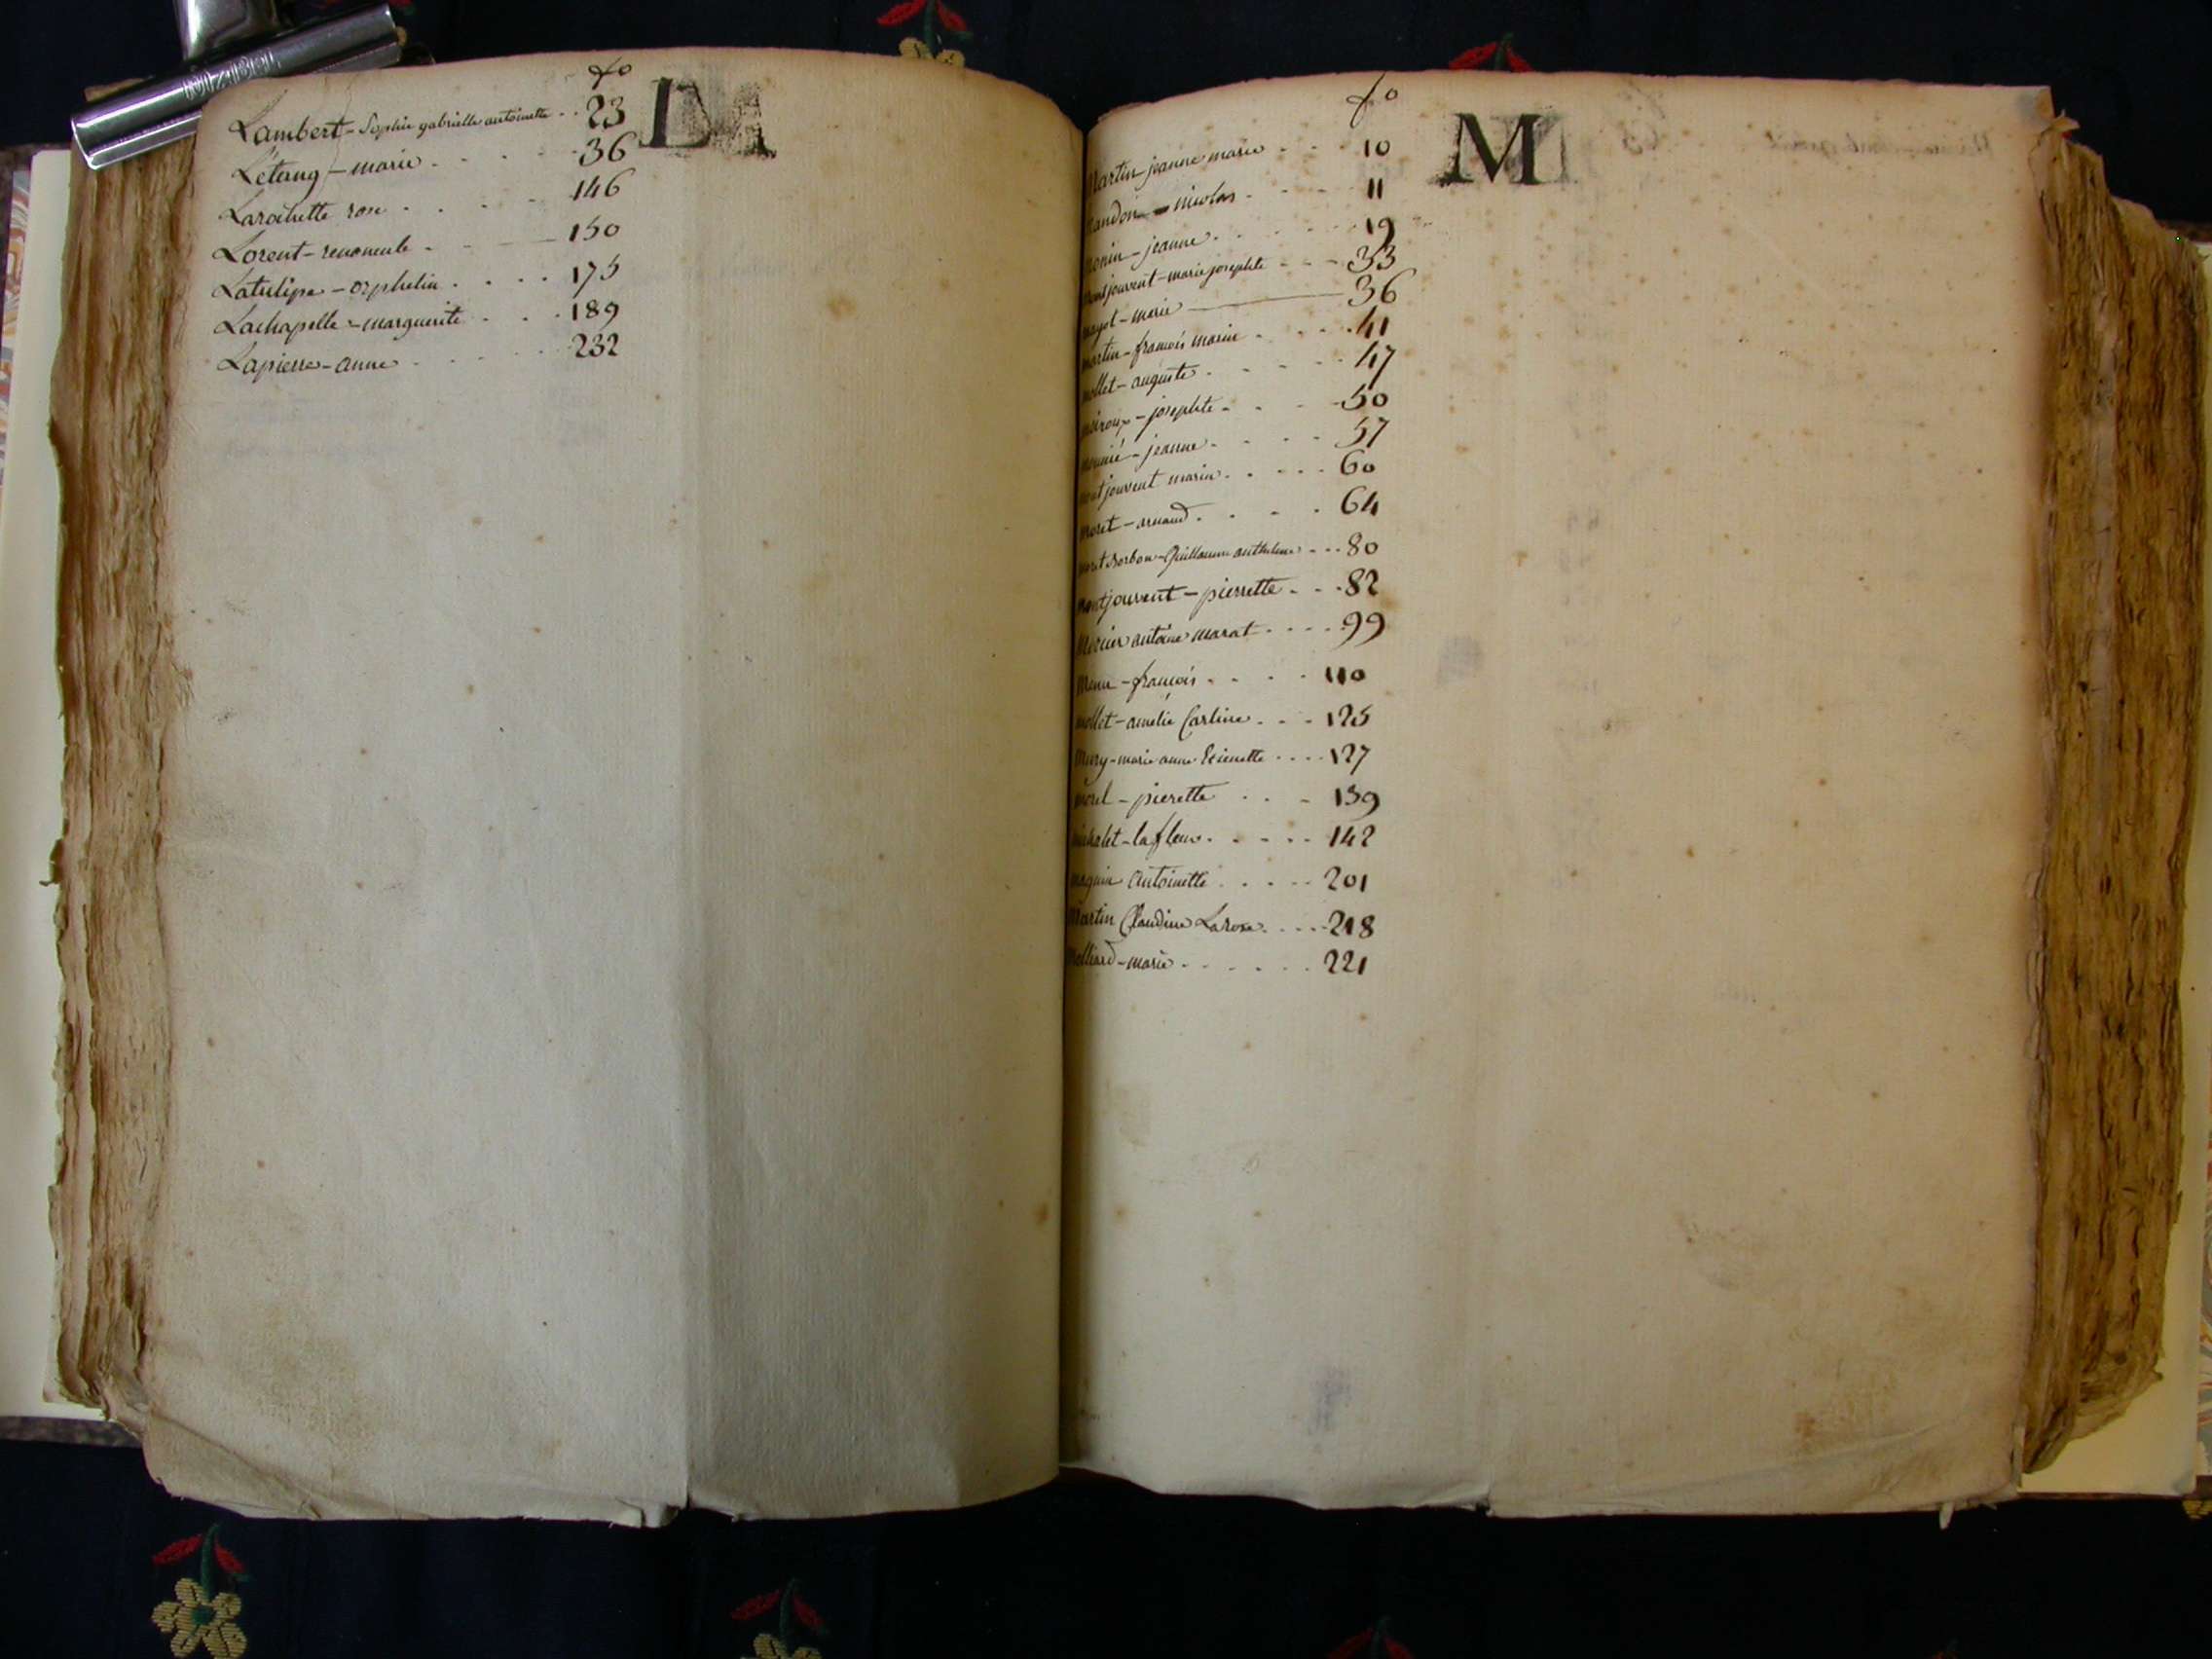 fo
L
Lambert - Sophie gabrielle antoinette . . 23
L'étang - marie . . . . 36
Larochette rose . . . . 146
Lorent - renoncule . . . 150
Latulipe - orphelin . . . . 175
Lachapelle - marguerite . . . 189
Lapierre - anne . . . . 232
fo
M
Martin jeanne marie . . . 10
nicolas . . . . 11
monin - jeanne . . . . 19
montjouvent - marie josephte . . . 33
mayol - marie 36
martin - francois marie . . . . 41
mollet - auguste . . . . 47
josephte . . . 50
jeanne . . . . 57
montjouvent marie . . . . 60
moret - arnaud . . . . 64
moret Sorbon - Guillaume anthelme . . . 80
montjouvent - pierrette . . . 82
Mercier antoine marat . . . . 99
Menu - francois . . . . 110
mollet - amelie Carline . . . 125
Mury - marie anne Etienette . . . . 127
morel - pierette . . . 139
michalet - lafleur . . . . . 142
magnin Antoinette . . . . . 201
Martin Claudine Larose . . . . 218
Molliard - marie . . . . . . 221